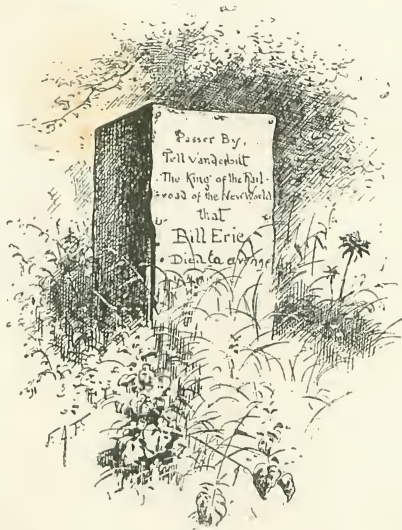 Passer By,
Tell Vanderbilt
The King of the Rail-
road of the New World
that
Bill Erie
Died to avenge